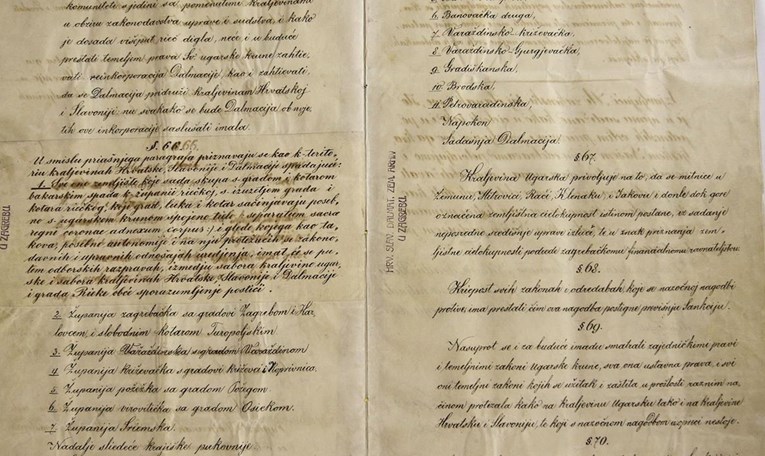 komunitetes s jedini sa pomenutimi kraljevinami
u obziru zakonodavstva uprave i sudstva, i kako
je dosada višeput reč digla, neće i u buduće
prestati temeljem prava Sv. ugarske krune zahtie
vati reinkorporaciju Dalmacije, kao i zahtievati,
da se Dalmacija pridruži kraljevinam Hrvatskoj
i Slavoniji nu svakako se bude Dalmacija ob uvje
tih ove inkorporacije saslušati imala.
§. 66 65.
U smislu prijašnjega paragrafa priznavaju se kao k terito-
riu kraljevinah Hrvatske, Slavonije i Dalmacije spadajuće:
1. Sve ono zemljište koje sada skupa s gradom i kotarom
bakarskim spada k županii riečkoj, s izuzetjem grada i
kotara riečkog, koji grad, luka i kotar sačinjavaju poseb-
no s ugarskom krunom spojeno tielo (: separatum sacrae
regni coronae adnexum corpus :) i glede kojega kao ta-
kova; posebne autonomije i na nju protežućih se zakono
davnih i upravnih odnošajah uredjenja, imat će se pu-
tem odborskih razpravah, izmedju sabora kraljevine ugar-
ske i sabora kraljevinah Hrvatske, Slavonije i Dalmacije
i grada Rieke obće sporazumljenje postići.
2. Županija zagrebačka sa gradovi Zagrebom i Kar
lovcem i slobodnim kotarom Turopoljskim.
3. Županija Varaždinska s gradom Varaždinom
4. Županija križevačka s gradovi Križevci i Koprivnica.
5. Županija požežka sa gradom Požegom.
6. Županija virovitička sa gradom Osiekom.
7. Županija Sriemska.
Nadalje sliedeće krajiške pukovnije
U ZAGREBU
6. Banovačka druga,
7. Varaždinsko-križevačka,
8. Varaždinsko-Gjurgjevačka,
9. Gradiškanska,
10. Brodska,
11. Petrovaradinska,
Napokon
Sadašnja Dalmacija
§ 67.
Kraljevina Ugarska privoljuje na to, da se mitnice u
Zemunu, Mitrovici, Rači, Klenaku, i Jakovu i donle dok gore
označena zemljištna cielokupnost istinom postane, uz sadanje
neposredno središnje uprave izluče, te u znak priznanja zem-
ljištne cielokupnosti podrede zagrebačkomu financialnomu ravnateljstvu
§ 68.
Krjepost svih zakonah i odredabah, koje se nazočnoj nagodbi
protive, ima prestati čim ova nagodba postigne previšnju Sankciju.
§ 69.
Nasuprot se i za buduće imadu smatrati zajedničkimi pravi
i temeljnimi zakoni Ugarske krune, sva ona ustavna prava, i svi
oni temeljni zakoni kojih se užitak i zaštita u prošlosti raznim na
činom protezala kako na kraljevinu Ugarsku tako i na kraljevine
Hrvatsku i Slavoniju, te koji s nazočnom nagodbom uzpored nestoje.
§ 70.
HRV. SLAV. DALMAT. ZEM. ARKIV
U ZAGREBU